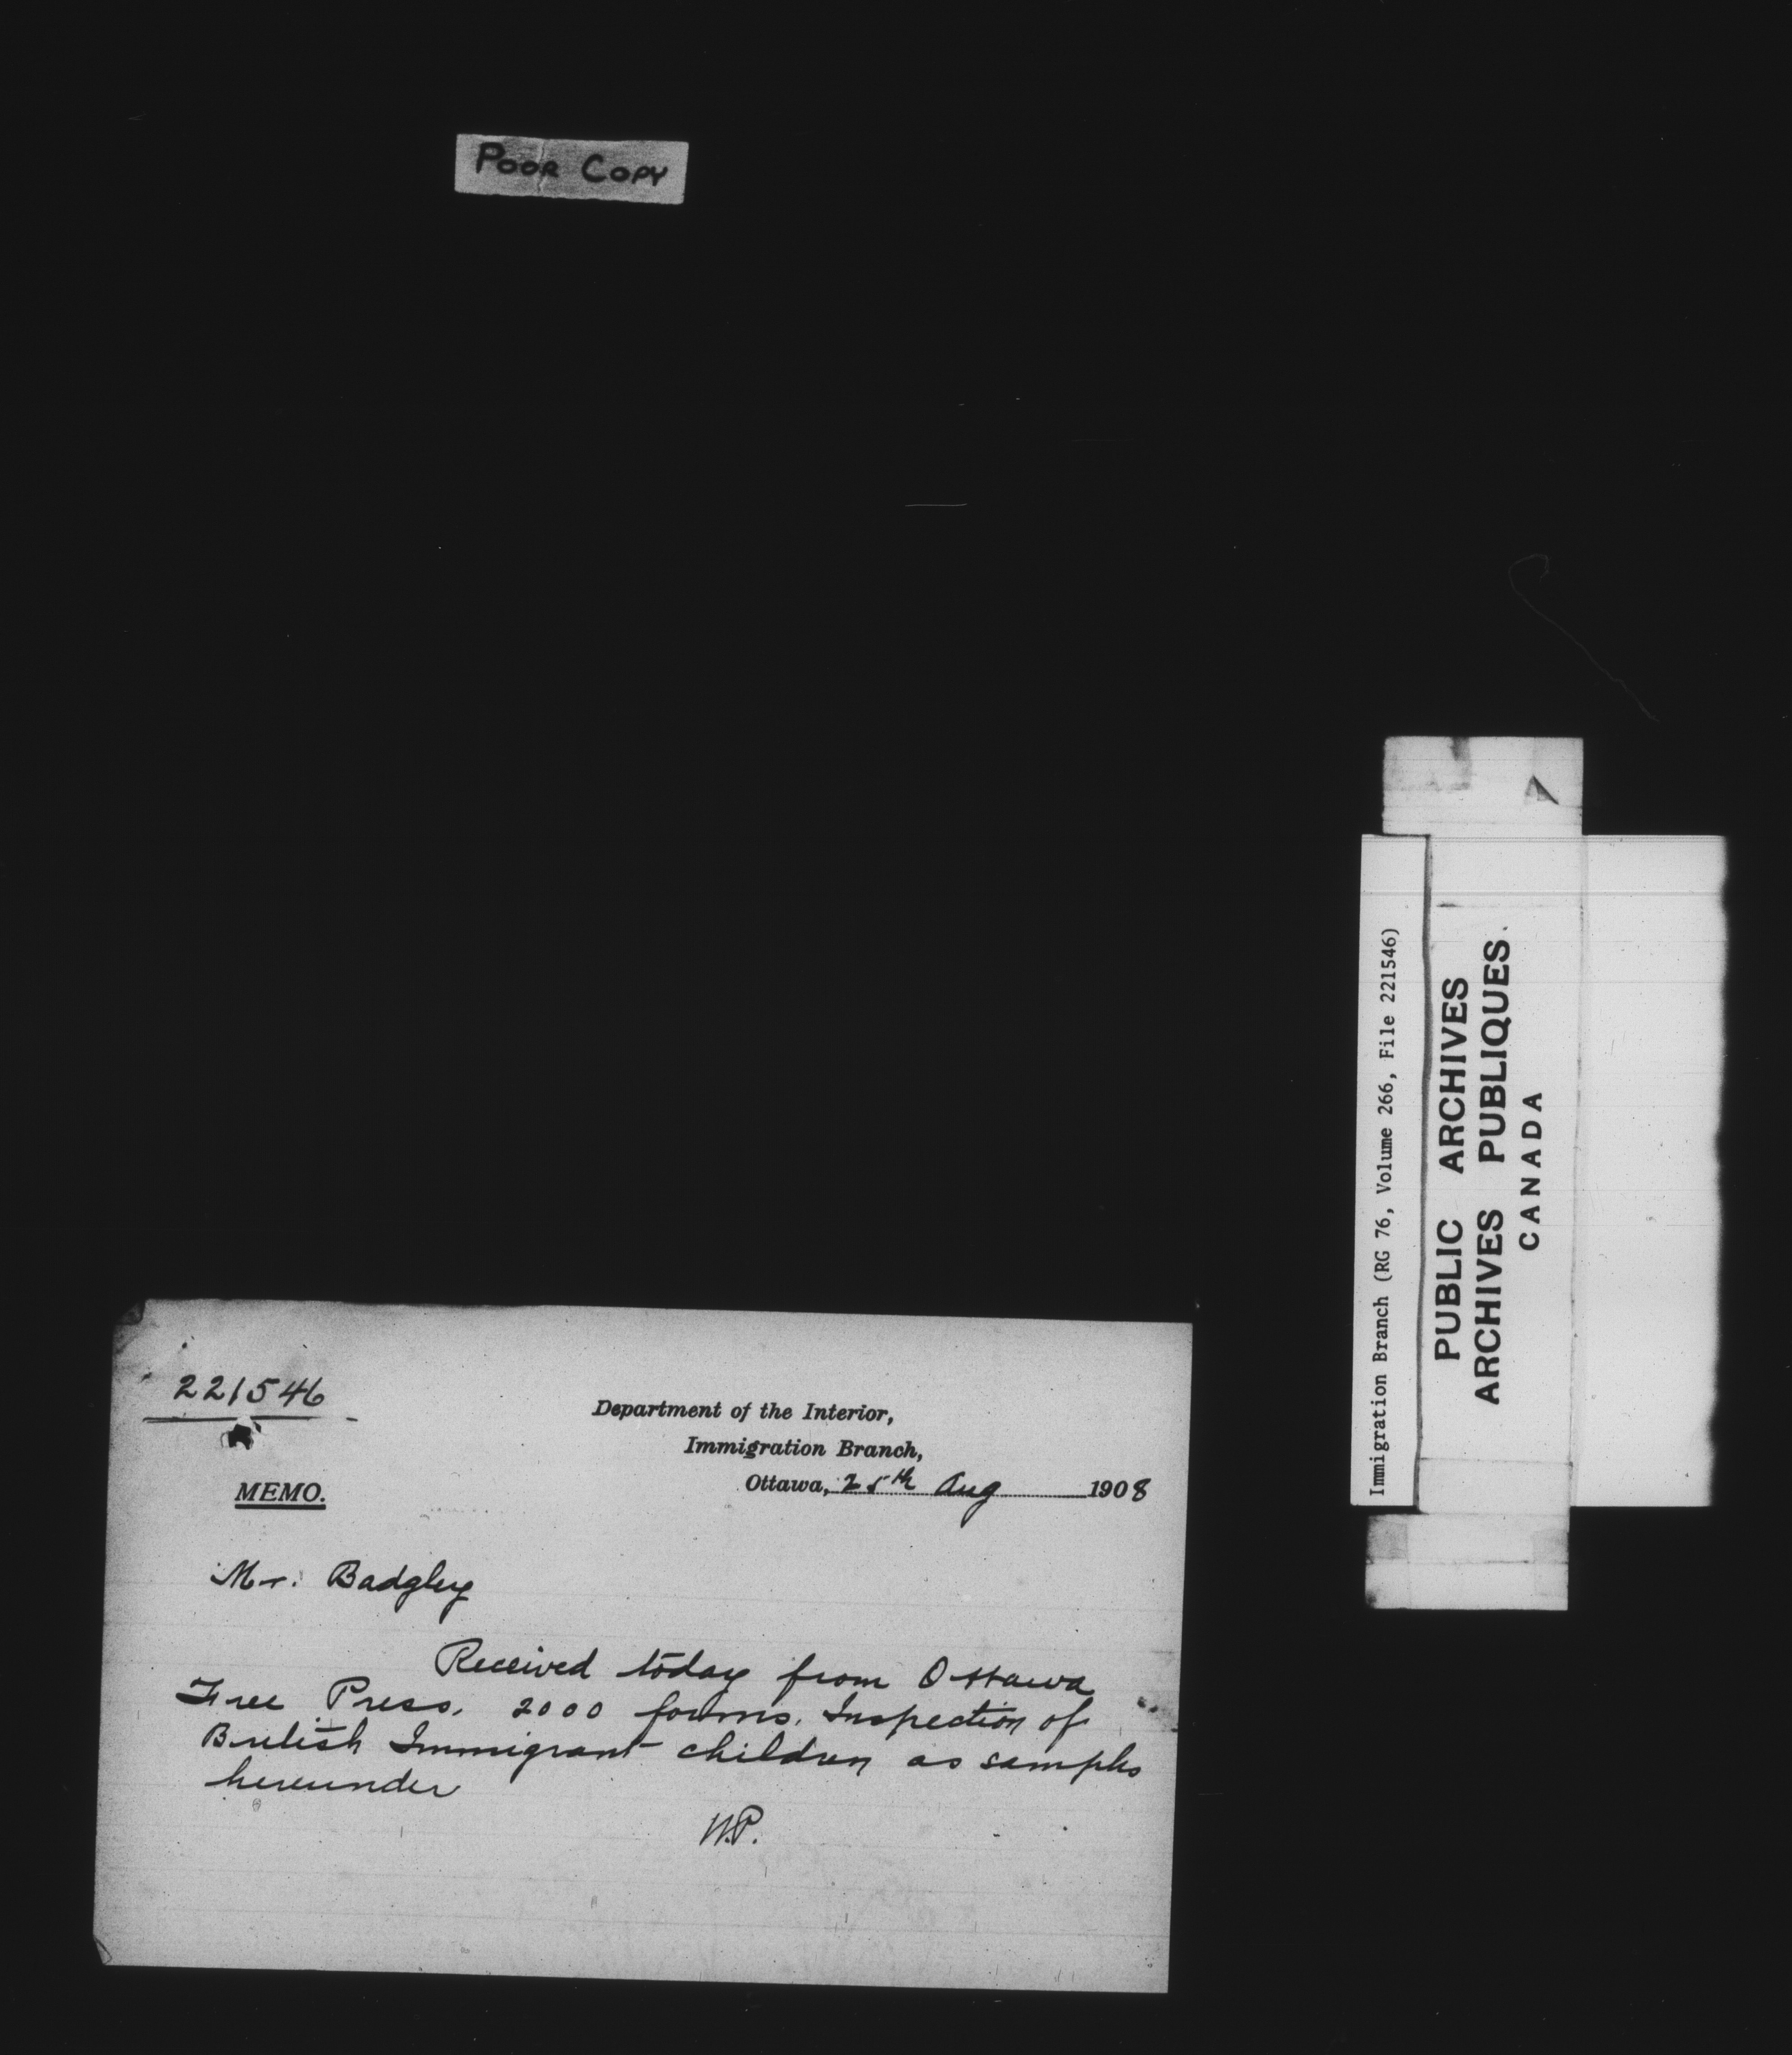 POOR COPY
221546
Department of the Interior,
Immigration Branch,
Ottawa, 25th Aug 1908
MEMO.
Mr. Badgley
Received today from Ottawa
Free Press. 2000 forms. Inspection of
British Immigrant children as sample
hereunder
W.P.
Immigration Branch (RG 76, Volume 266, File 221546)
PUBLIC ARCHIVES
ARCHIVES PUBLIQUES
CANADA